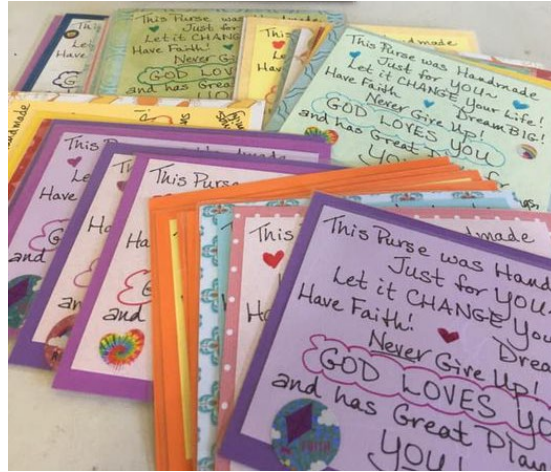 This
Ha
This Purse was
Just for
Let it CHA
Have Faith!
Never G
GOD LOVES
and has
This
Le
Have
ndmade
This Purse was Handmade
Just for YOU~
Let it CHANGE Your Life!
Have Faith Dream BIG!
Never Give Up!
GOD LOVES YOU
and has Great Pla
YOU
This Purs
Le
Have
an
This
Have
and
This Purse
Have
and
This
dmade
This Purse was Hand
Just for YOU~
Let it CHANGE You
Have Faith! Drea
Never Give Up!
GOD LOVES YO
and has Great Plan
YOU!
FAITH